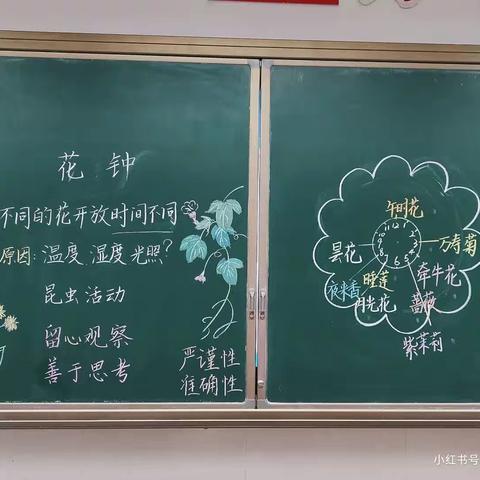 花钟
不同的花开放时间不同
原因：温度、湿度、光照？
昆虫活动
留心观察
善于思考
严谨性
准确性
午时花
万寿菊
昙花
牵牛花
夜来香
睡莲
蔷薇
月光花
紫茉莉
11 12 1
10 2
9 3
8 4
7 6 5
小红书号